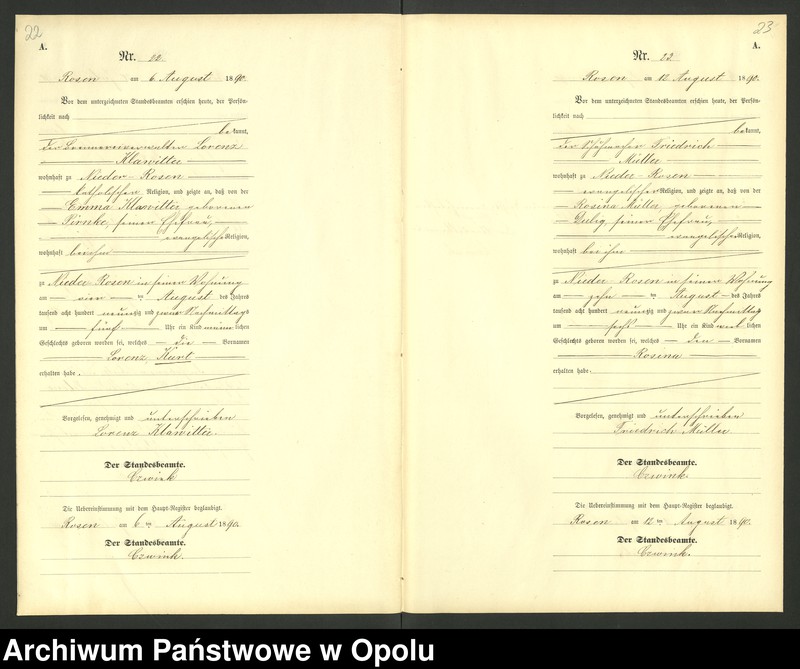 22
A.
Nr. 22.
Rosen am 6. August 1890.
Vor dem unterzeichneten Standesbeamten erschien heute, der Persön-
lichkeit nach
bekannt,
der Lorenz
Klawitter
wohnhaft zu Nieder-Rosen
katholischer Religion, und zeigte an, daß von der
Emma Klawitter geborenen
Pirnke, seiner Ehefrau,
evangelischer Religion,
wohnhaft bei ihm
zu Nieder Rosen in seiner Wohnung
am vier ten August des Jahres
tausend acht hundert neunzig und zwar Nachmittags
um fünf Uhr ein Kind männlichen
Geschlechts geboren worden sei, welches die Vornamen
Lorenz Kurt
erhalten habe.
Vorgelesen, genehmigt und unterschrieben
Lorenz Klawitter.
Der Standesbeamte.
Czwink
Die Uebereinstimmung mit dem Haupt-Register beglaubigt.
Rosen am 6ten August 1890.
Der Standesbeamte.
Czwink.
23
A.
Nr. 23.
Rosen am 12. August 1890.
Vor dem unterzeichneten Standesbeamten erschien heute, der Persön-
lichkeit nach
bekannt,
der Friedrich
Müller
wohnhaft zu Nieder-Rosen
evangelischer Religion, und zeigte an, daß von der
Rosina Müller, geborenen
seiner Ehefrau,
evangelischer Religion,
wohnhaft bei ihm
zu Nieder Rosen in seiner Wohnung
am zehn ten August des Jahres
tausend acht hundert neunzig und zwar Nachmittags
um sechs Uhr ein Kind weiblichen
Geschlechts geboren worden sei, welches den Vornamen
Rosina
erhalten habe.
Vorgelesen, genehmigt und unterschrieben
Friedrich Müller
Der Standesbeamte.
Czwink.
Die Uebereinstimmung mit dem Haupt-Register beglaubigt.
Rosen am 12ten August 1890.
Der Standesbeamte.
Czwink.
Archiwum Państwowe w Opolu